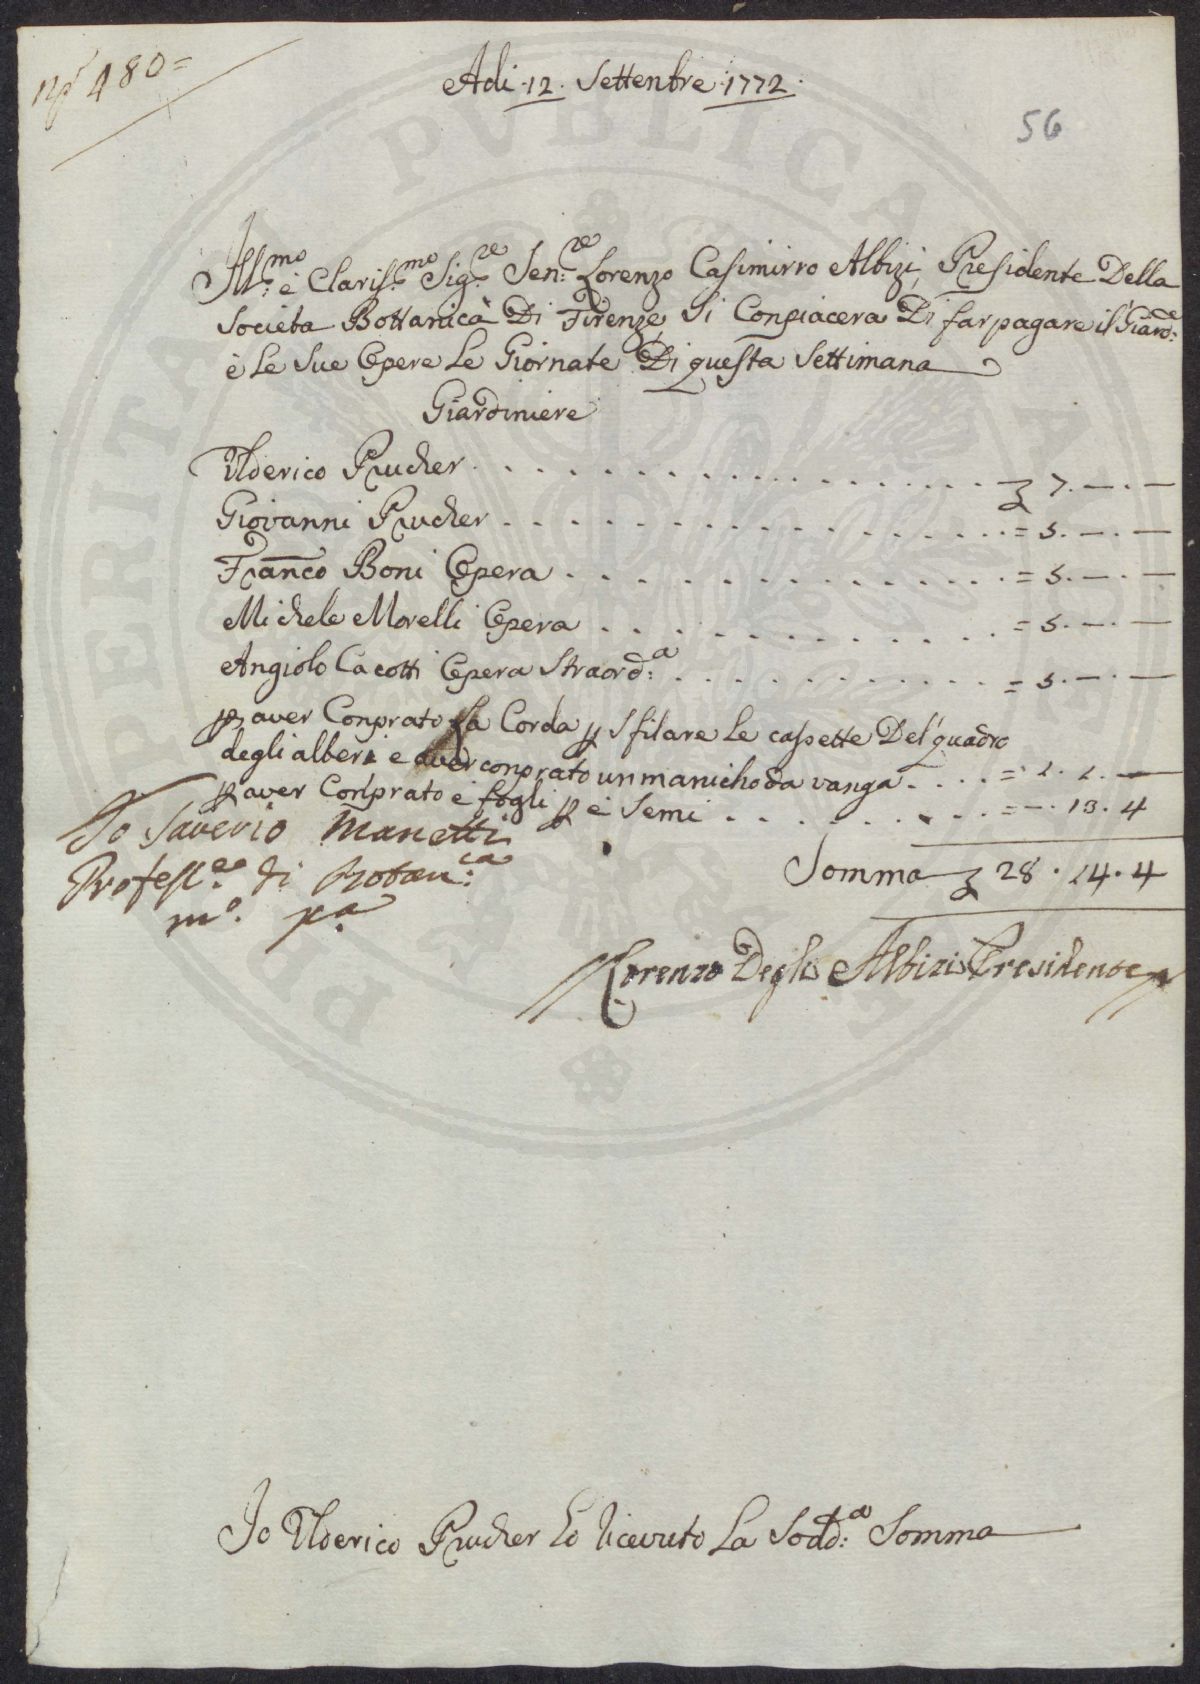 Nº 480=
Adi 12. Settenbre 1772.
56
Ill:mo è Claris:mo Sig:re Sen:re Lorenzo Casimirro Albizi, Presidente Della
Societa Bottanica Di Firenze Si Conpiacera Di far pagare il Giard:e
è Le Sue Opere Le Giornate Di questa Settimana
Giardiniere
Ulderico Prucher . . . . . . . . . . . . . . . . £ 7. — . —
Giovanni Prucher . . . . . . . . . . . . . . . = 5. — . —
Franco Boni Opera . . . . . . . . . . . . . . = 5. — . —
Michele Morelli Opera . . . . . . . . . . . . = 5. — . —
Angiolo Cacotti Opera Straord:a . . . . . . . . . = 5. — . —
p aver Conprato La Corda p Sfilare Le cassette Del' quadro
degli alberi e aver conprato un manicho da vanga . . . . = 1. 1. —
p aver Conprato e' fogli p e' Semi . . . . . . . . . = — . 13. 4
Somma £ 28. 14. 4
Io Saverio Manetti
Profess:e di Botan:ca
mo. pa
Lorenzo Degli Albizi Presidente
Io Ulderico Prucher ho ricevuto La Sodd:a Somma
PERITI PVBLICA